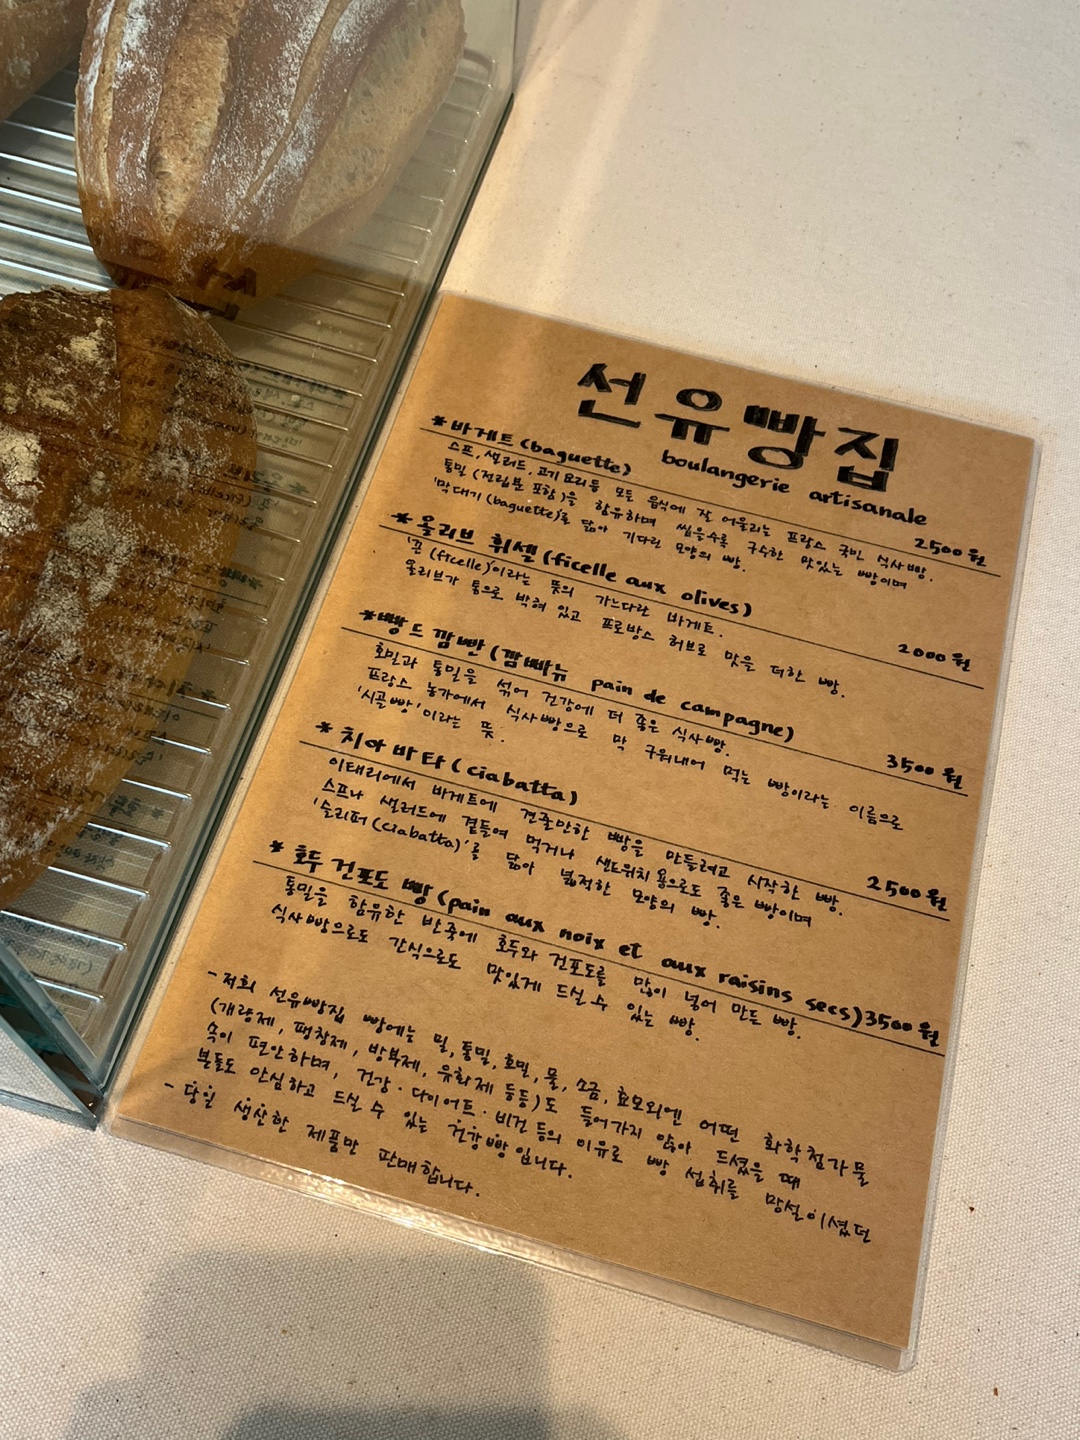 선유빵집
boulangerie artisanale
* 바게트 (baguette) 2500원
스프, 샐러드, 고기 요리 등 모든 음식에 잘 어울리는 프랑스 국민 식사빵.
통밀 (전립분 포함)을 함유하며 씹을수록 구수한 맛있는 빵이며
'막대기 (baguette)'를 닮아 기다란 모양의 빵.
* 올리브 휘셀 (ficelle aux olives) 2000원
'끈 (ficelle)'이라는 뜻의 가느다란 바게트.
올리브가 통으로 박혀 있고 프로방스 허브로 맛을 더한 빵.
* 빵 드 깜빤 (깜빠뉴 pain de campagne) 3500원
호밀과 통밀을 섞어 건강에 더 좋은 식사빵.
프랑스 농가에서 식사빵으로 막 구워내어 먹는 빵이라는 이름으로
'시골빵'이라는 뜻.
* 치아바타 (ciabatta) 2500원
이태리에서 바게트에 견줄만한 빵을 만들려고 시작한 빵.
스프나 샐러드에 곁들여 먹거나 샌드위치용으로도 좋은 빵이며
'슬리퍼 (ciabatta)'를 닮아 넓적한 모양의 빵.
* 호두 건포도 빵 (pain aux noix et aux raisins secs) 3500원
통밀을 함유한 반죽에 호두와 건포도를 많이 넣어 만든 빵.
식사빵으로도 간식으로도 맛있게 드실 수 있는 빵.
- 저희 선유빵집 빵에는 밀, 통밀, 호밀, 물, 소금, 효모외엔 어떤 화학첨가물
(개량제, 팽창제, 방부제, 유화제 등등)도 들어가지 않아 드셨을 때
속이 편안하며, 건강·다이어트·비건 등의 이유로 빵 섭취를 망설이셨던
분들도 안심하고 드실 수 있는 건강빵입니다.
- 당일 생산한 제품만 판매합니다.